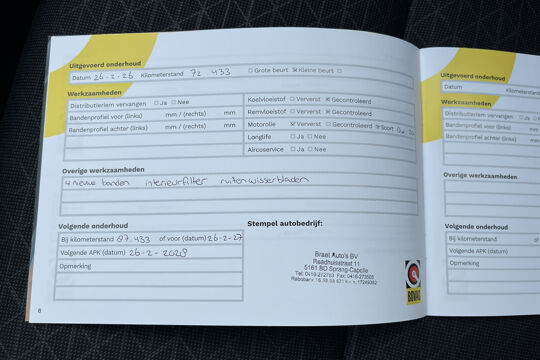 Uitgevoerd onderhoud
Datum 26-2-26 Kilometerstand 72.433 Grote beurt Kleine beurt
Werkzaamheden
Distributieriem vervangen Ja Nee
Bandenprofiel voor (links) mm / (rechts) mm
Bandenprofiel achter (links) mm / (rechts) mm
Koelvloeistof Ververst Gecontroleerd
Remvloeistof Ververst Gecontroleerd
Motorolie Ververst Gecontroleerd Soort
Longlife Ja Nee
Aircoservice Ja Nee
Overige werkzaamheden
4 nieuwe banden interieurfilter ruitenwisserbladen
Volgende onderhoud
Bij kilometerstand 87.433 of voor (datum) 26-2-27
Volgende APK (datum) 26-2-2028
Opmerking
Stempel autobedrijf:
Braat Auto's BV
Raadhuisstraat 11
5161 BD Sprang-Capelle
BOVAG
6
Uitgevoerd onderhoud
Datum Kilometerstand
Werkzaamheden
Distributieriem vervangen Ja
Bandenprofiel voor (links)
Bandenprofiel achter (links)
Overige werkzaamheden
Volgende onderhoud
Bij kilometerstand of
Volgende APK (datum)
Opmerking